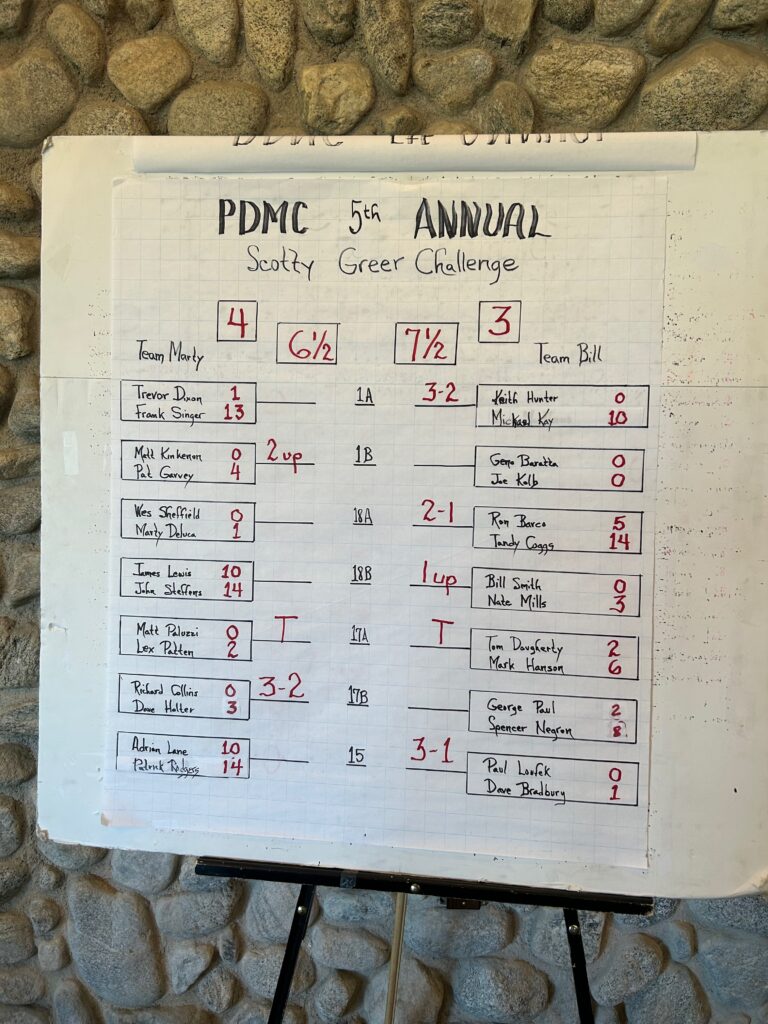 PDMC 5th ANNUAL
Scotty Greer Challenge
4 3
6½ 7½
Team Marty Team Bill
Trevor Dixon 1 1A 3-2 Keith Hunter 0
Frank Singer 13 Michael Kay 10
Matt Kinkenon 0 2up 1B Geno Baratta 0
Pat Garvey 4 Joe Kolb 0
Wes Sheffield 0 18A 2-1 Ron Barco 5
Marty Deluca 1 Tandy Coggs 14
James Lewis 10 18B 1up Bill Smith 0
John Steffens 14 Nate Mills 3
Matt Paluzzi 0 T 17A T Tom Dougherty 2
Lex Patten 2 Mark Hanson 6
Richard Collins 0 3-2 17B George Paul 2
Dave Halter 3 Spencer Negron 8
Adrian Lane 10 15 3-1 Paul 0
Patrick Rodgers 14 Dave Bradbury 1